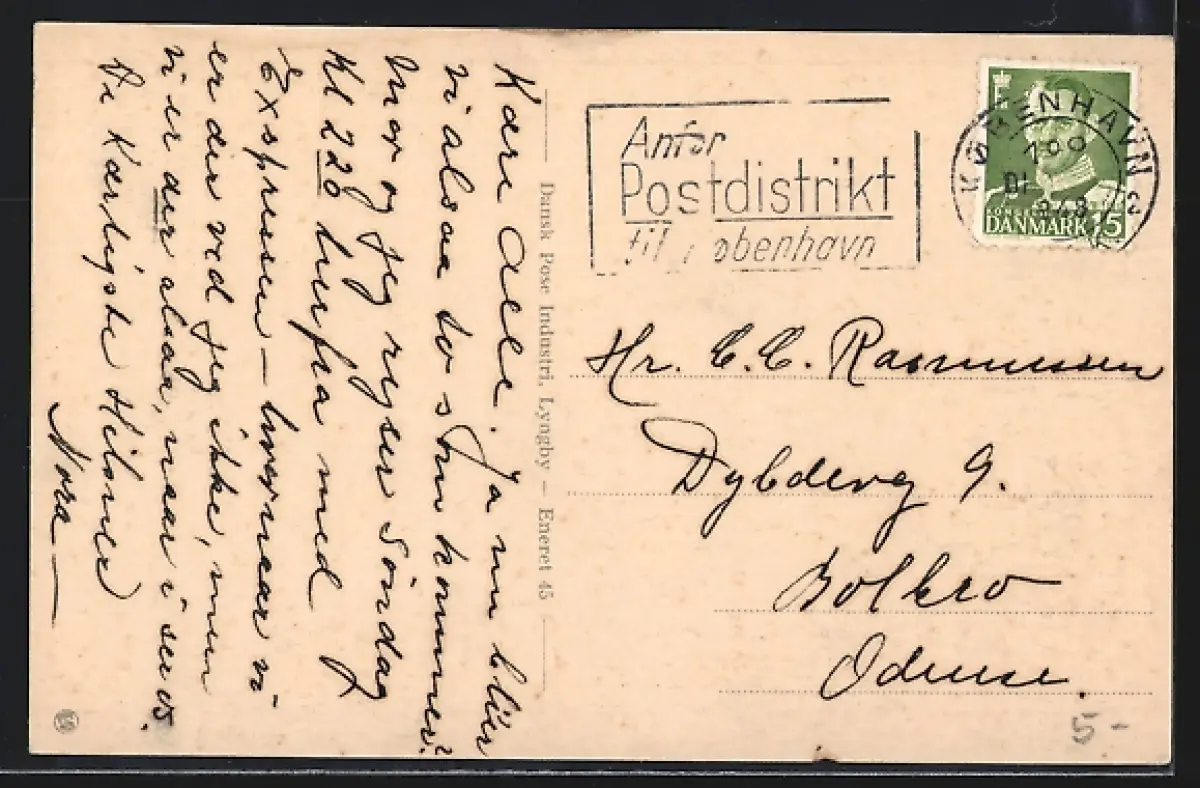 Kære Alle. Ja nu blier
vi alsaa to som kommer
Mor og Jeg rejser Söndag
Kl 220 herfra med
Expressen — hvornaar vi
er der ved Jeg ikke, men
vi er der alsaa, naar i ser os.
De Kærligste Hilsner
Nora —
Dansk Pose Industri, Lyngby — Eneret 45
Anfør
Postdistrikt
til København
KØBENHAVN
DANMARK 15
Hr. C. C. Rasmussen
Dybderg 9.
Bolbro
Odense.
5-